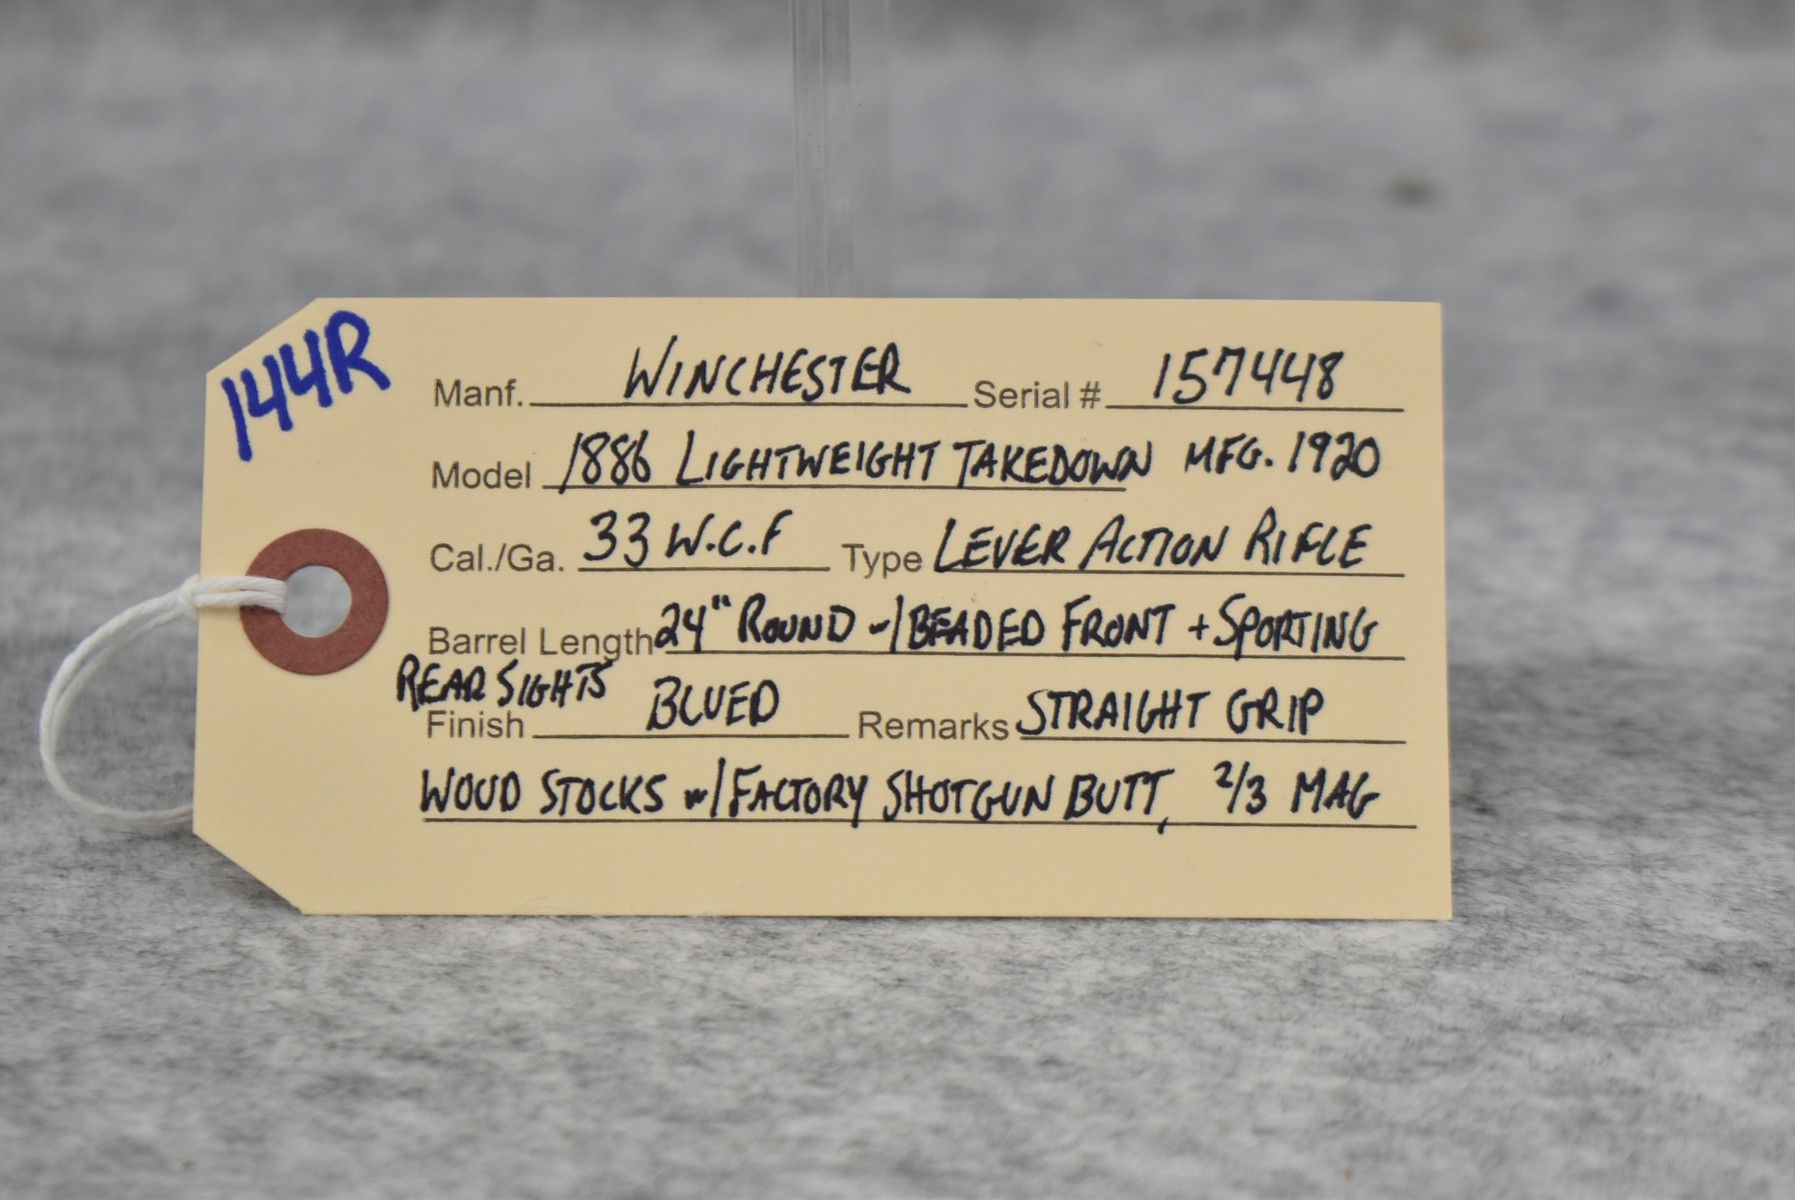 144R
Manf. WINCHESTER Serial # 157448
Model 1886 LIGHTWEIGHT TAKEDOWN MFG. 1920
Cal./Ga. 33 W.C.F Type LEVER ACTION RIFLE
Barrel Length 24" ROUND w/ BEADED FRONT + SPORTING
REAR SIGHTS
Finish BLUED Remarks STRAIGHT GRIP
WOOD STOCKS w/ FACTORY SHOTGUN BUTT, 2/3 MAG